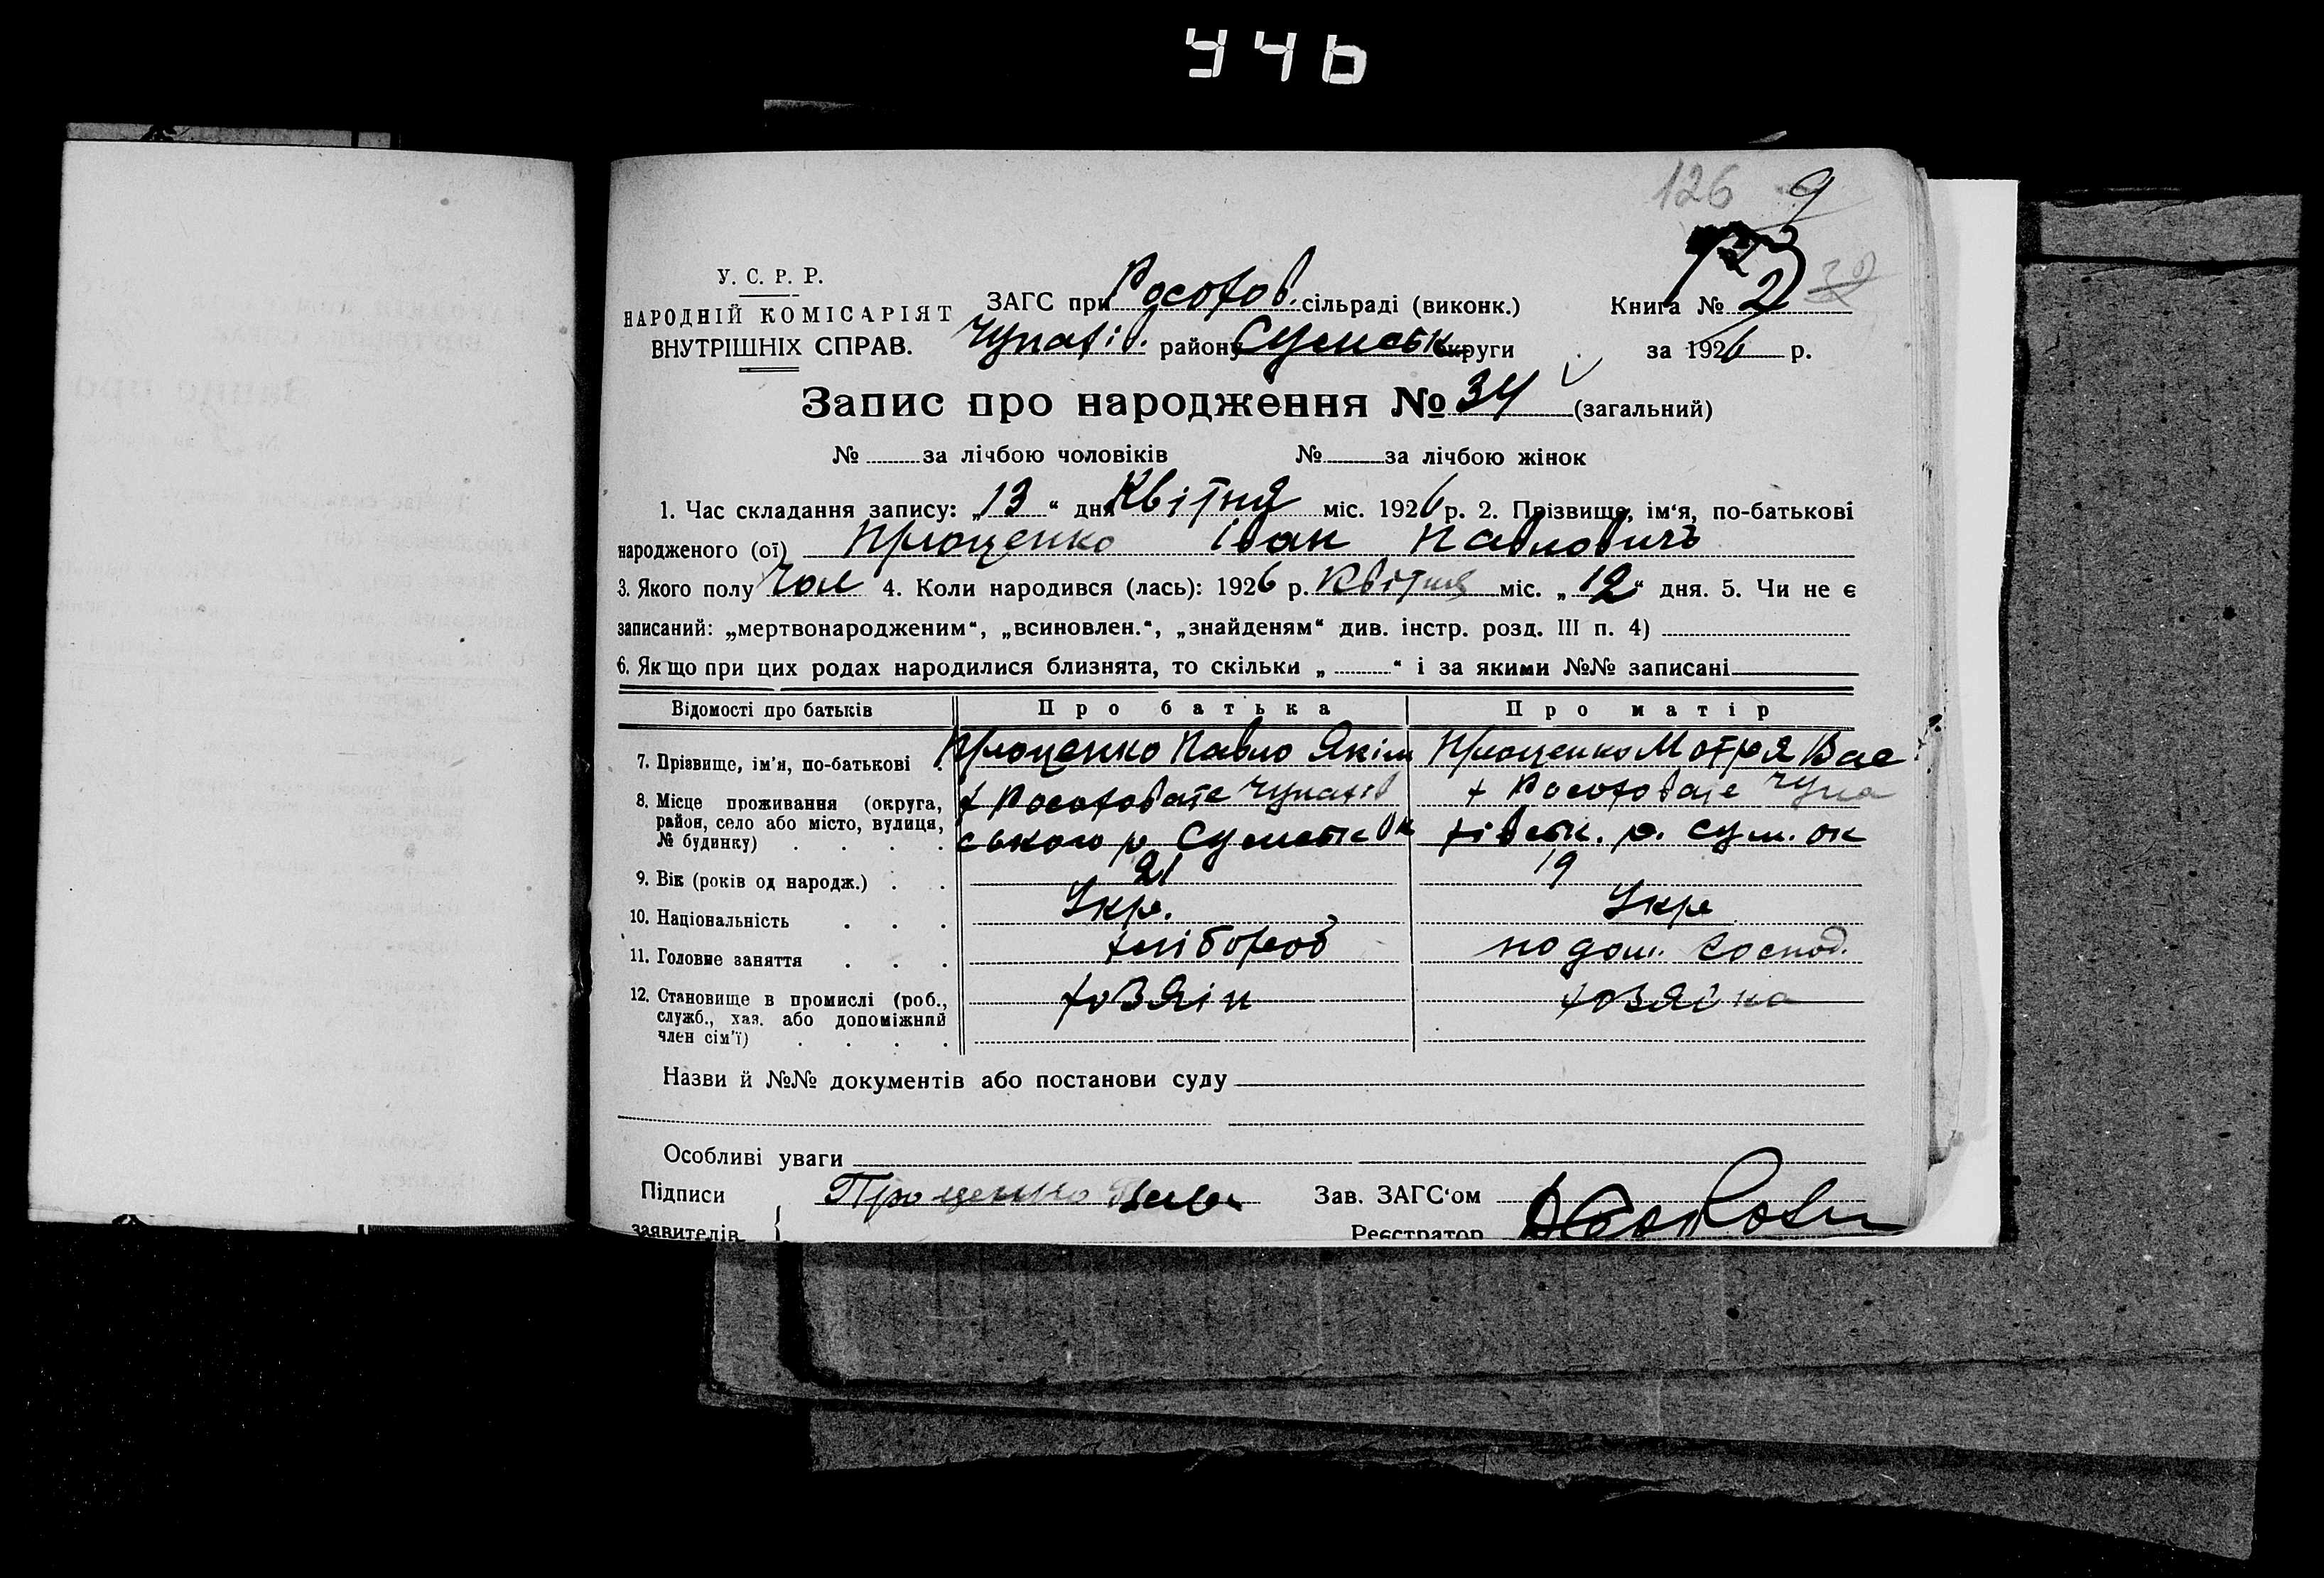 446
126 9
У. С. Р. Р.
НАРОДНІЙ КОМІСАРІЯТ
ВНУТРІШНІХ СПРАВ.
ЗАГС при Росохов. сільраді (виконк.)
Чупахів. району Сумськ. округи
Книга № 2 32
за 1926 р.
Запис про народження № 34 (загальний)
№ за лічбою чоловіків № за лічбою жінок
1. Час складання запису: „13“ дня Квітня міс. 1926 р. 2. Прізвище, ім‘я, по-батькові
народженого (ої) Проценко Іван Павловичъ
3. Якого полу Чол 4. Коли народився (лась): 1926 р. Квітня міс. „12“ дня. 5. Чи не є
записаний: „мертвонародженим“, „всиновлен.“, „знайденям“ див. інстр. розд. III п. 4)
6. Якщо при цих родах народилися близнята, то скільки „ “ і за якими №№ записані
Відомості про батьків Про батька Про матір
7. Прізвище, ім‘я, по-батькові Проценко Павло Якім Проценко Мотря Вас
8. Місце проживання (округа, х Росоховате Чупахів х Росоховате Чупа
район, село або місто, вулиця, ського р Сумськ ок хівськ. р. Сум. ок
№ будинку)
9. Вік (років од народж.) 21 19
10. Національність Укр. Укр
11. Головне заняття хлібороб по дом. господ.
12. Становище в промислі (роб., хозяін хозяйка
служб., хаз. або допоміжний
член сім‘ї)
Назви й №№ документів або постанови суду
Особливі уваги
Підписи Проценко Зав. ЗАГС‘ом
заявителів { Реєстратор